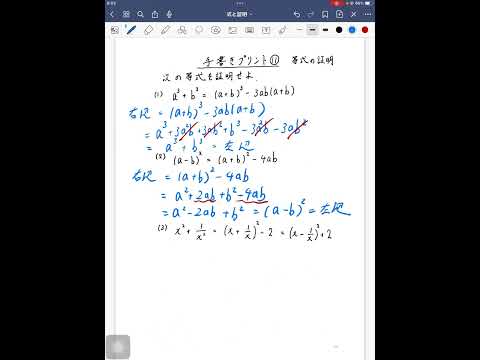 式と証明
66%
手書きプリント⑪ 等式の証明
次の等式を証明せよ.
(1) a³ + b³ = (a+b)³ - 3ab(a+b)
右辺 = (a+b)³ - 3ab(a+b)
= a³ + 3a²b + 3ab² + b³ - 3a²b - 3ab²
= a³ + b³ = 左辺
(2) (a-b)² = (a+b)² - 4ab
右辺 = (a+b)² - 4ab
= a² + 2ab + b² - 4ab
= a² - 2ab + b² = (a-b)² = 左辺
(3) x² + 1/x² = (x + 1/x)² - 2 = (x - 1/x)² + 2